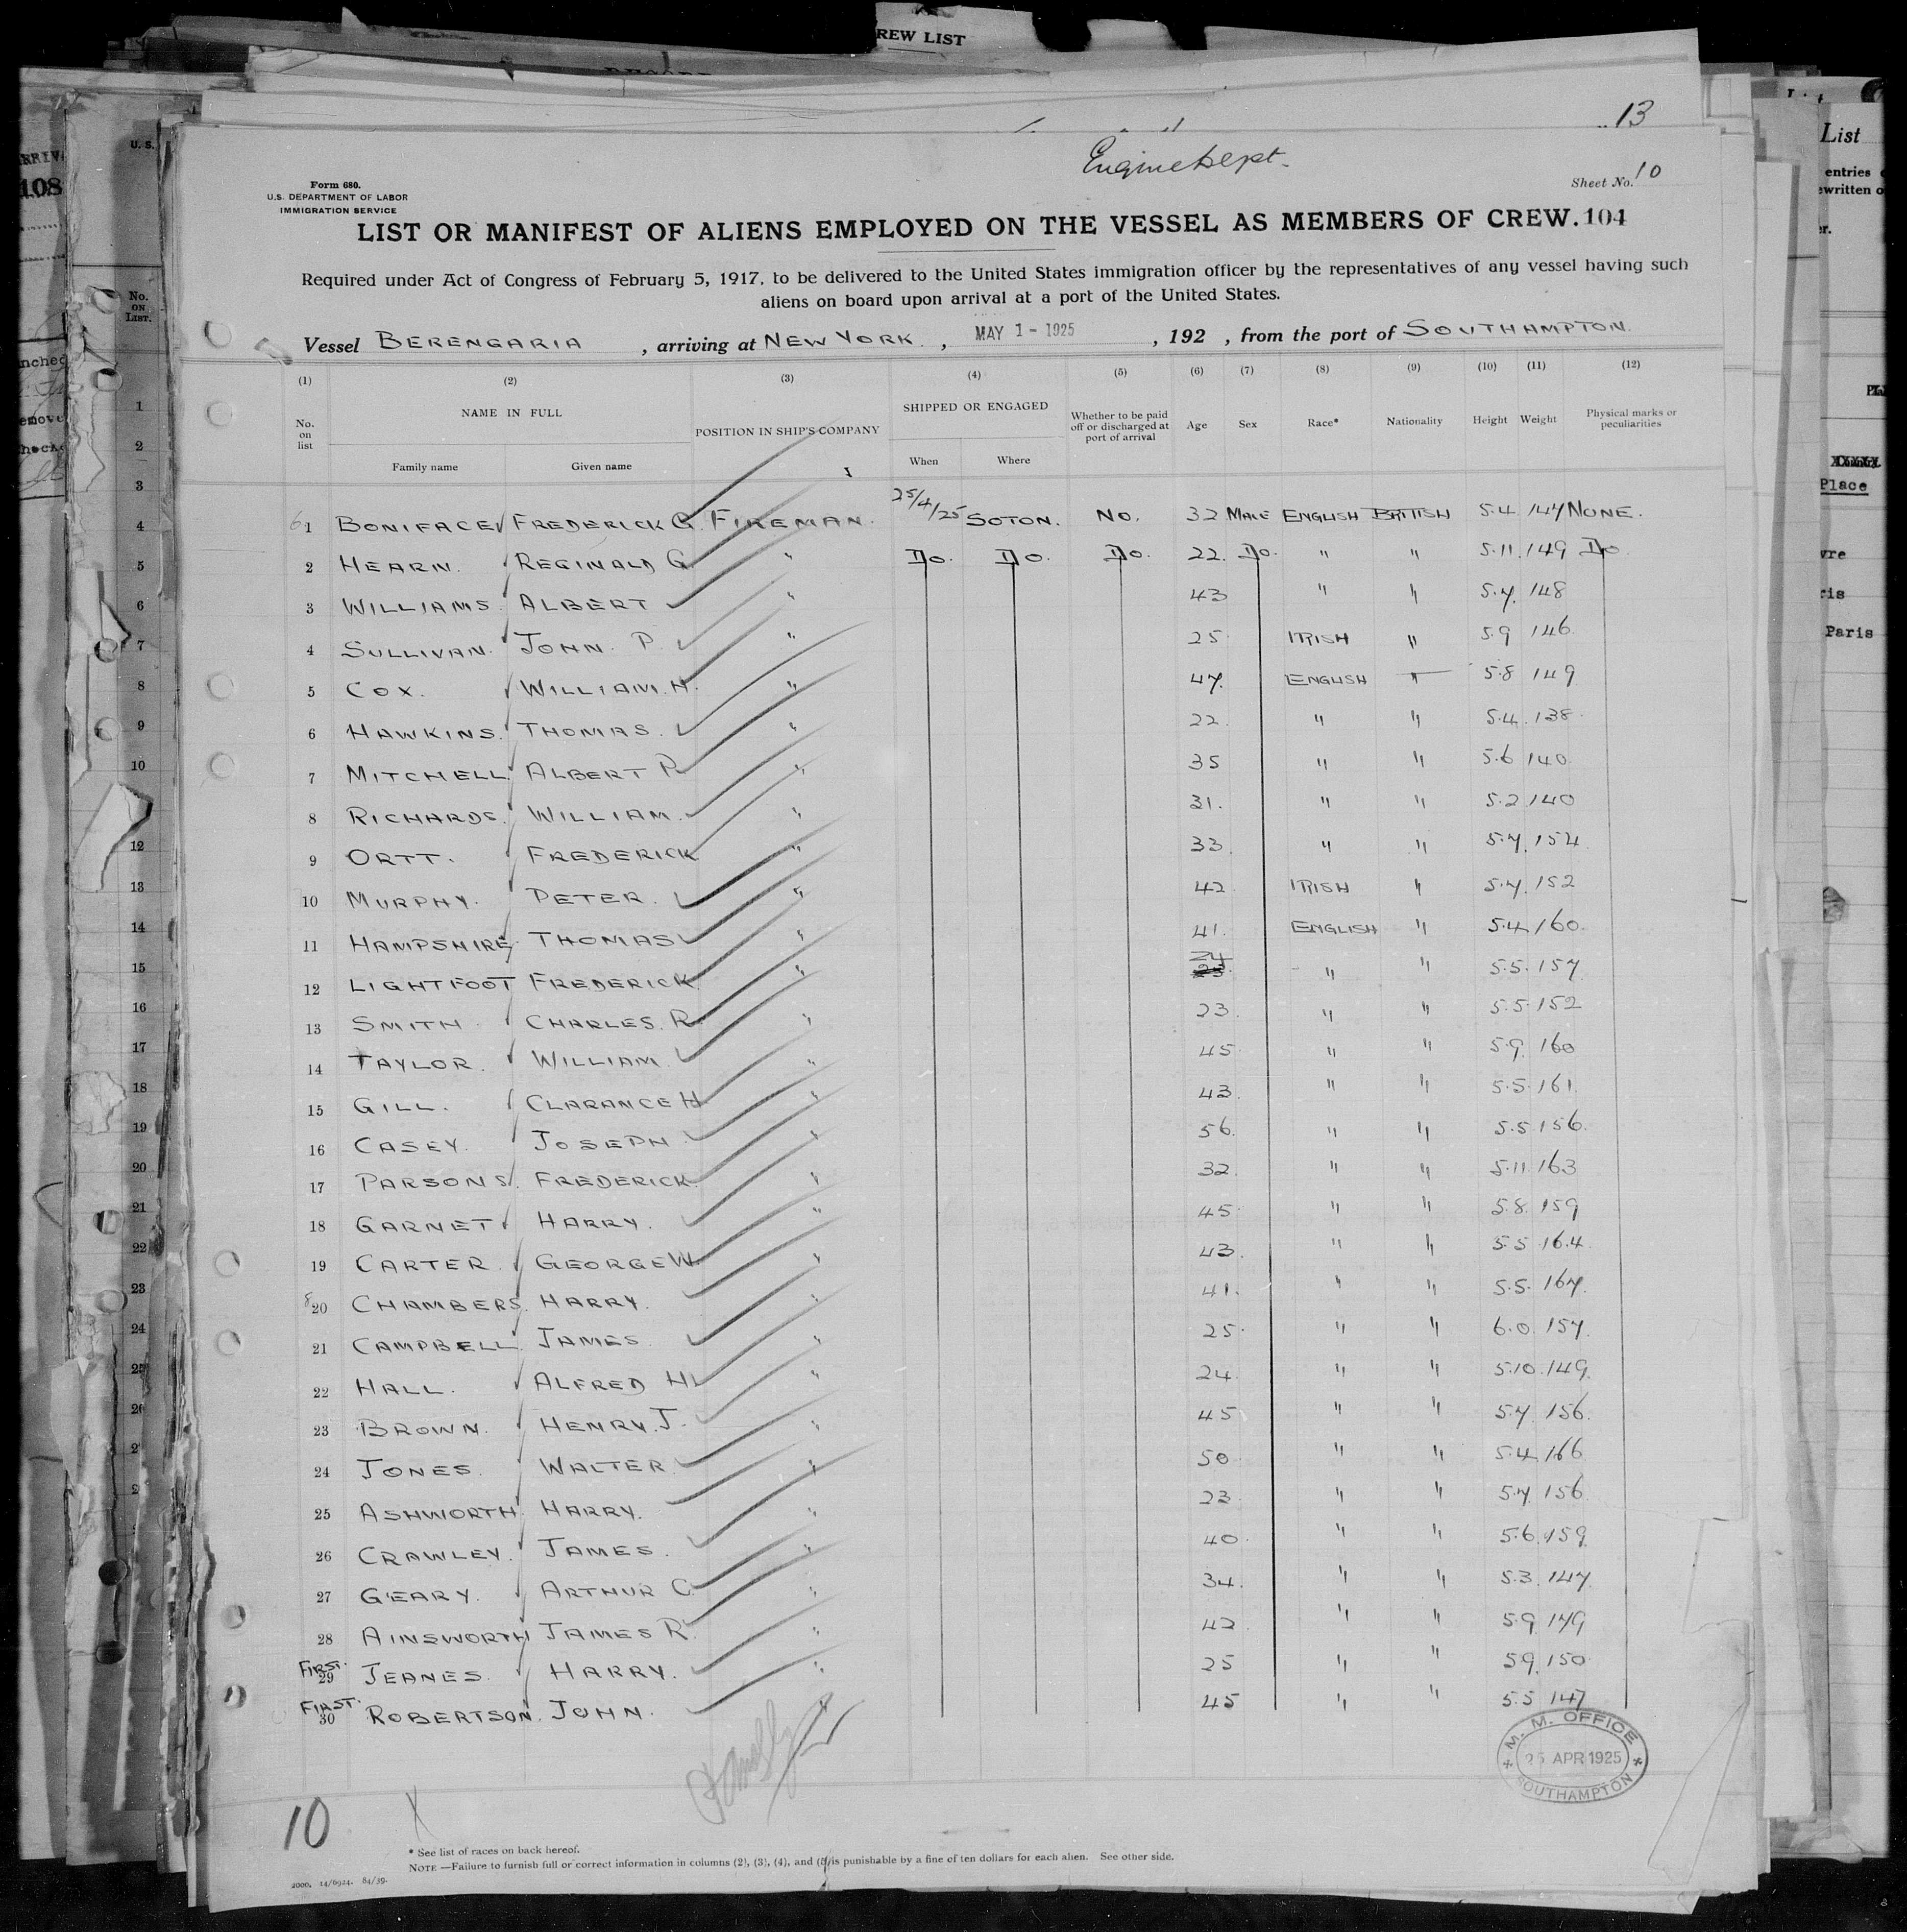 REW LIST
13
Engine Dept.
Form 680.
U.S. DEPARTMENT OF LABOR
IMMIGRATION SERVICE
Sheet No. 10
LIST OR MANIFEST OF ALIENS EMPLOYED ON THE VESSEL AS MEMBERS OF CREW. 104
Required under Act of Congress of February 5, 1917, to be delivered to the United States immigration officer by the representatives of any vessel having such
aliens on board upon arrival at a port of the United States.
Vessel BERENGARIA , arriving at NEW YORK. , MAY 1 - 1925 , 192 , from the port of SOUTHAMPTON.
(1) (2) (3) (4) (5) (6) (7) (8) (9) (10) (11) (12)
No. on list NAME IN FULL POSITION IN SHIP'S COMPANY SHIPPED OR ENGAGED Whether to be paid off or discharged at port of arrival Age Sex Race* Nationality Height Weight Physical marks or peculiarities
Family name Given name When Where
1 BONIFACE FREDERICK G. FIREMAN. 25/4/25 SOTON. NO. 32 MALE ENGLISH BRITISH 5.4 147 NONE.
2 HEARN. REGINALD G. " Do. Do. Do. 22. Do. " " 5.11. 149 Do
3 WILLIAMS. ALBERT " 43 " " 5.7. 148
4 SULLIVAN. JOHN. P. " 25 IRISH " 5.9 146.
5 COX. WILLIAM. H. " 47. ENGLISH " 5.8 149
6 HAWKINS. THOMAS. " 22. " " 5.4. 138.
7 MITCHELL. ALBERT P. " 35 " " 5.6 140.
8 RICHARDS. WILLIAM. " 31. " " 5.2 140
9 ORTT. FREDERICK " 33. " " 5.7. 154
10 MURPHY. PETER. " 42 IRISH " 5.7. 152
11 HAMPSHIRE THOMAS " 41. ENGLISH " 5.4 160.
12 LIGHTFOOT FREDERICK " 24 " " 5.5. 157
13 SMITH. CHARLES. R. " 23. " " 5.5 152
14 TAYLOR. WILLIAM. " 45. " " 5.9. 160
15 GILL. CLARANCE H. " 43. " " 5.5. 161.
16 CASEY. JOSEPH. " 56. " " 5.5 156.
17 PARSONS. FREDERICK. " 32. " " 5.11. 163
18 GARNET HARRY. " 45. " " 5.8. 159
19 CARTER. GEORGE W. " 43. " " 5.5 164.
20 CHAMBERS. HARRY. " 41. " " 5.5. 167.
21 CAMPBELL. JAMES. " 25. " " 6.0. 157.
22 HALL. ALFRED H. " 24. " " 5.10. 149.
23 BROWN. HENRY. J. " 45 " " 5.7. 156.
24 JONES. WALTER. " 50 " " 5.4. 166
25 ASHWORTH HARRY. " 23. " " 5.7. 156
26 CRAWLEY. JAMES. " 40. " " 5.6. 159.
27 GEARY. ARTHUR C. " 34. " " 5.3. 147.
28 AINSWORTH JAMES R. " 42. " " 5.9
FIRST. 29 JEANES. HARRY. " 25 " " 5.9. 150.
FIRST. 30 ROBERTSON. JOHN. " 45 " " 5.5 147
M. M. OFFICE
APR 1925
SOUTHAMPTON
10
X
* See list of races on back hereof.
NOTE.—Failure to furnish full or correct information in columns (2), (3), (4), and (5) is punishable by a fine of ten dollars for each alien. See other side.
2000. 14/6924. 84/39.
U. S.
No. ON LIST.
1
2
3
4
5
6
7
8
9
10
12
13
14
15
16
17
18
19
20
21
22
23
24
25
26
108
List
entries
Place
Paris